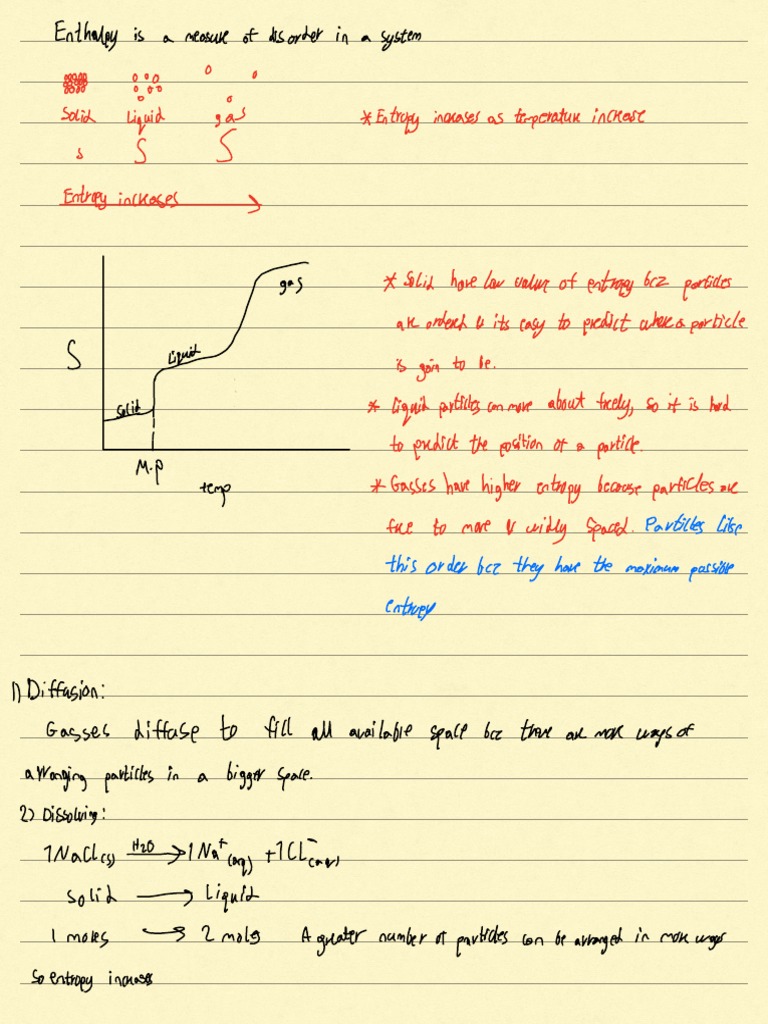 Enthalpy is a measure of disorder in a system
Solid Liquid gas
s S S
* Entropy increases as temperature increase
Entropy increases
S
solid
Liquid
gas
M.P
temp
* Solid have low value of entropy bcz particles
are ordered & its easy to predict where a particle
is goin to be.
* Liquid particles can move about freely, so it is hard
to predict the position of a particle.
* Gasses have higher entropy because particles are
free to move & widly spaced. Particles like
this order bcz they have the maximum possible
entropy
1) Diffusion:
Gasses diffuse to fill all available space bcz there are more ways of
arranging particles in a bigger space.
2) Dissolving:
1NaCl(s) H2O → 1Na+(aq) + 1CL-(aq)
Solid → Liquid
1 moles → 2 mols A greater number of particles can be arranged in more ways
so entropy increases